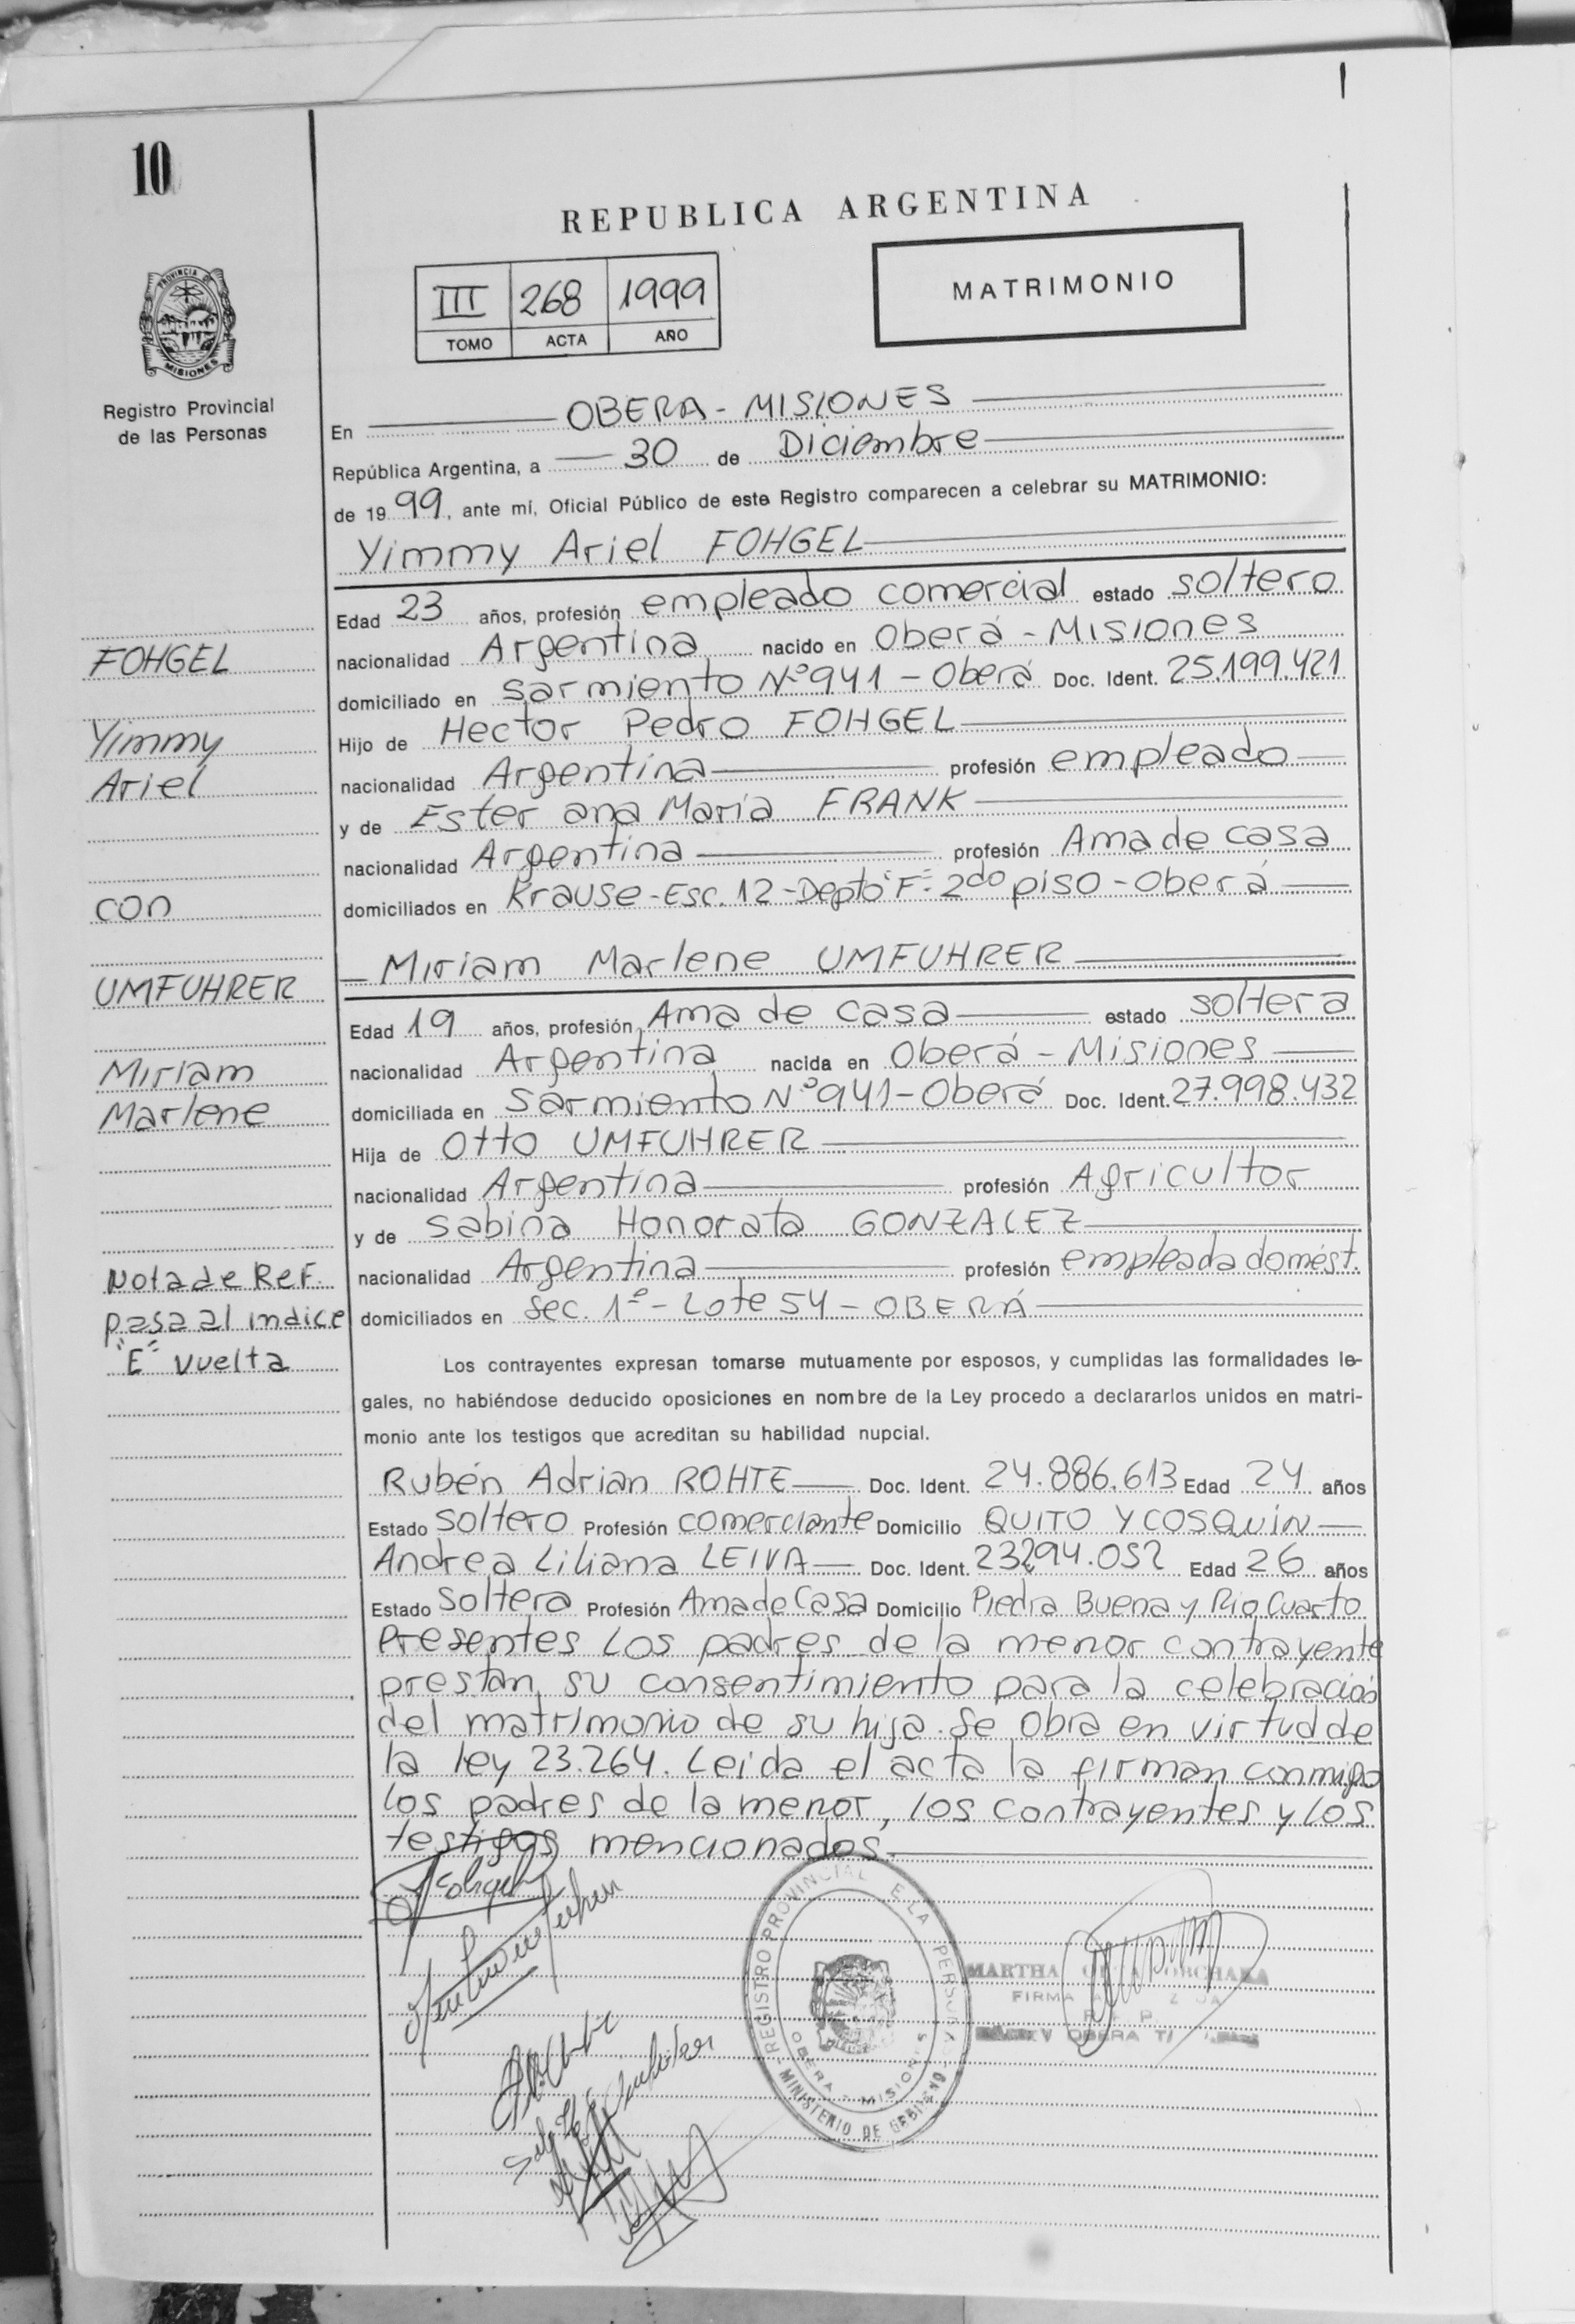 10
REPUBLICA ARGENTINA
III 268 1999
TOMO ACTA AÑO
MATRIMONIO
PROVINCIA DE
MISIONES
Registro Provincial
de las Personas
En OBERA - MISIONES
República Argentina, a 30 de Diciembre
de 19 99, ante mí, Oficial Público de este Registro comparecen a celebrar su MATRIMONIO:
Yimmy Ariel FOHGEL
Edad 23 años, profesión empleado comercial estado soltero
nacionalidad Argentina nacido en Oberá - Misiones
domiciliado en Sarmiento Nº 941 - Oberá Doc. Ident. 25.199.421
Hijo de Hector Pedro FOHGEL
nacionalidad Argentina profesión empleado
y de Ester ana María FRANK
nacionalidad Argentina profesión Ama de casa
domiciliados en Krause - Esc. 12 - Depto "F" - 2do piso - Oberá
Miriam Marlene UMFUHRER
Edad 19 años, profesión Ama de casa estado soltera
nacionalidad Argentina nacida en Oberá - Misiones
domiciliada en Sarmiento Nº 941 - Oberá Doc. Ident. 27.998.432
Hija de Otto UMFUHRER
nacionalidad Argentina profesión Agricultor
y de Sabina Honorata GONZALEZ
nacionalidad Argentina profesión empleada domést.
domiciliados en Sec. 1º - Lote 54 - OBERÁ
FOHGEL
Yimmy
Ariel
con
UMFUHRER
Miriam
Marlene
Nota de Ref.
pasa al indice
"E" vuelta
Los contrayentes expresan tomarse mutuamente por esposos, y cumplidas las formalidades le-
gales, no habiéndose deducido oposiciones en nombre de la Ley procedo a declararlos unidos en matri-
monio ante los testigos que acreditan su habilidad nupcial.
Rubén Adrian ROHTE Doc. Ident. 24.886.613 Edad 24 años
Estado soltero Profesión comerciante Domicilio QUITO Y COSQUÍN
Andrea Liliana LEIVA Doc. Ident. 23294.052 Edad 26 años
Estado Soltera Profesión Ama de Casa Domicilio Piedra Buena y Rio Cuarto
Presentes los padres de la menor contrayente
prestan su consentimiento para la celebración
del matrimonio de su hija. Se obra en virtud de
la ley 23.264. Leida el acta la firman conmigo
los padres de la menor, los contrayentes y los
testigos mencionados.
REGISTRO PROVINCIAL E LA PERSONAS
OBERA - MISIONES
MINISTERIO DE GOBIERNO
MARTHA
FIRMA
OBERA